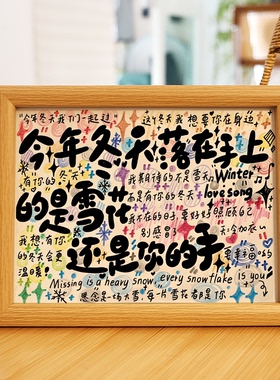 今年冬天我们一起过
这个冬天我想要你在身边
今年冬天落在手上
我期待的不是雪
有你的冬天
Winter
love song
的是雪花
我不在的日子 要好好照顾自己
别感冒了
我想有你
的冬天会更
温暖
还是你的手
Missing is a heavy snow, every snowflake
is you
思念是一场大雪,每一片雪花都是你